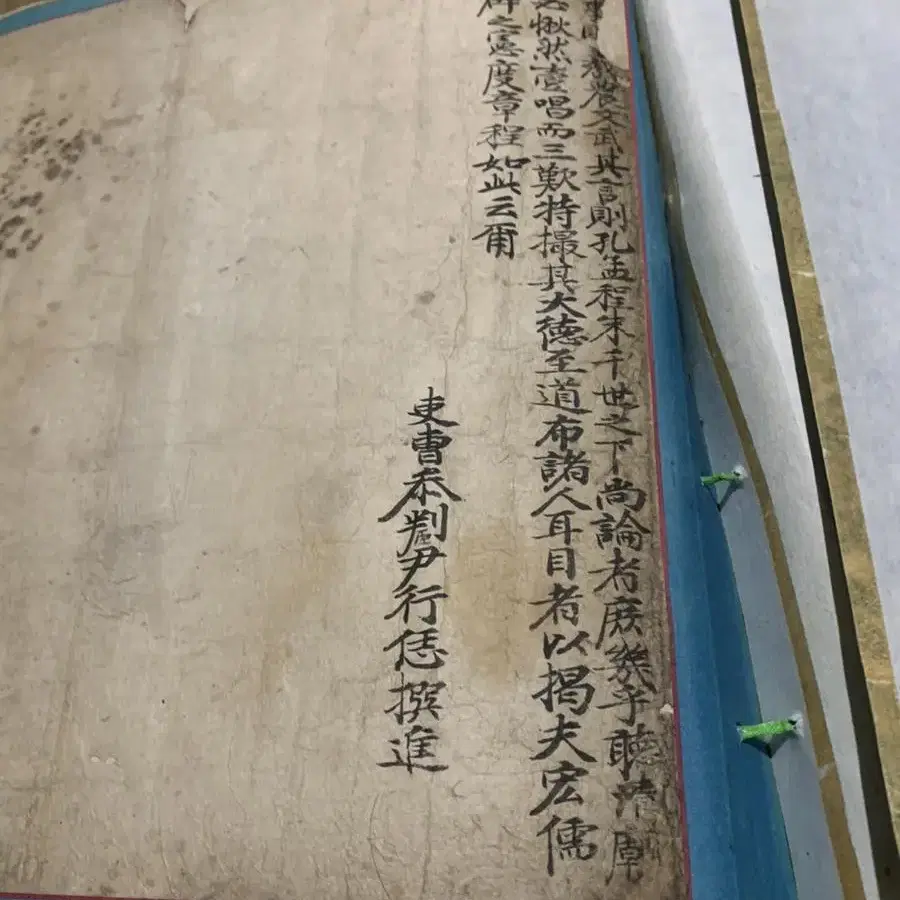 農文武其言則孔孟程朱千世之下尚論者庶幾乎聽淸
愀然壹唱而三歎特撮其大德至道布諸人耳目者以揭夫宏儒
之憲度章程如此云爾
吏曹叅判尹行恁撰進